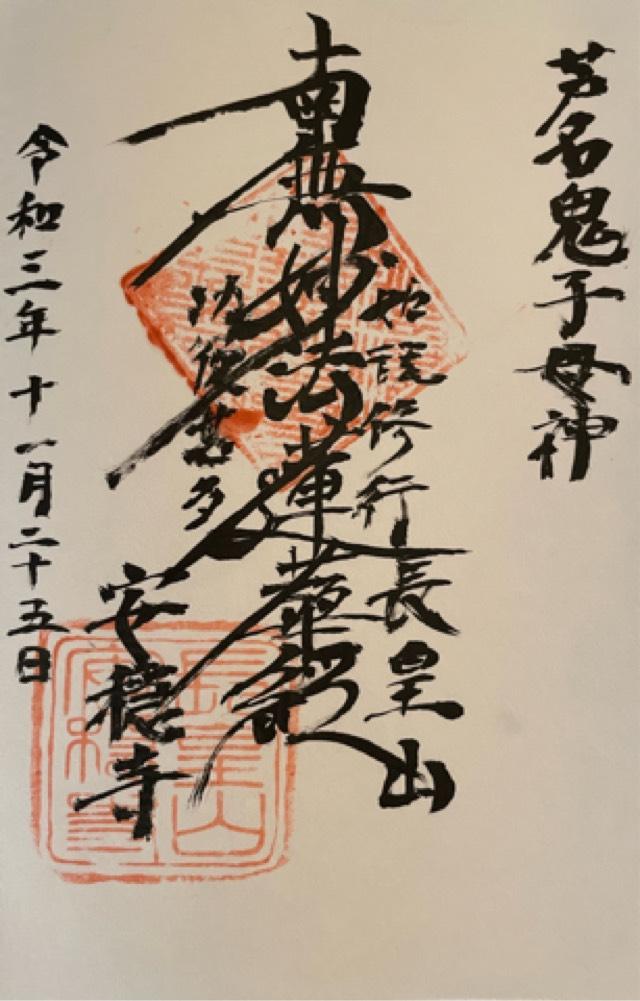 芦名鬼子母神
如説修行
長皇山
南無妙法蓮華経
功徳甚多
安穏寺
令和三年十一月二十五日
長皇山
安穏寺